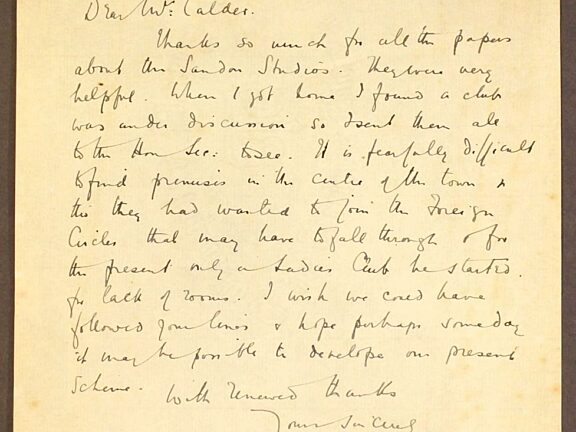 Dear Mr. Calder.
Thanks so much for all the papers
about the Sandon Studios. They were very
helpful. When I got home I found a club
was under discussion so I sent them all
to the Hon Sec: to see. It is fearfully difficult
to find premises in the centre of the town &
tho they had wanted to join the Foreign
Circles that may have to fall through & for
the present only a Ladies Club be started.
for lack of rooms. I wish we could have
followed your lines & hope perhaps someday
it may be possible to develope our present
Scheme.
With renewed thanks
Yours Sincerely